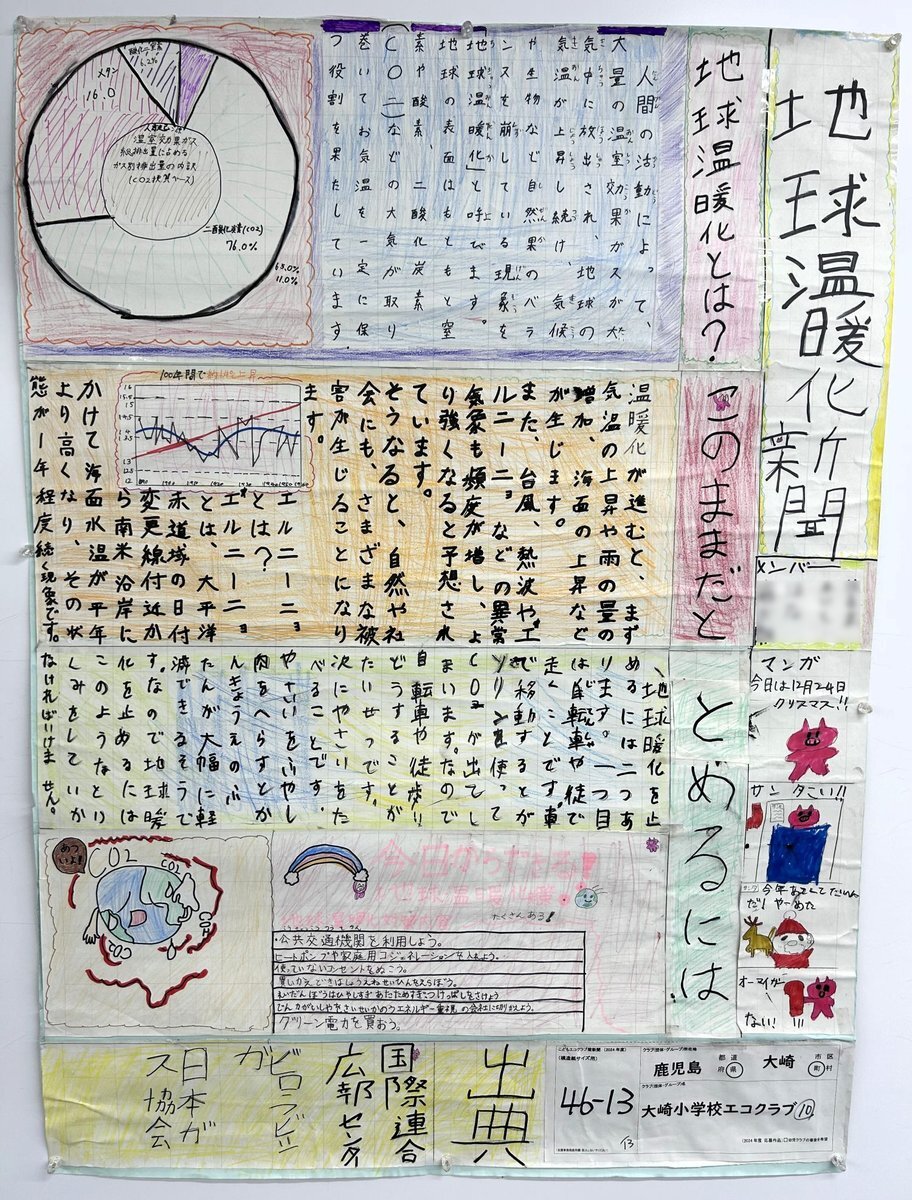 地球温暖化新聞
メンバー
地球温暖化とは?
人間の活動によって、
大量の温室効果ガスが大
気中に放出され、地球の
気温が上昇し続け、気候
や生物など自然界のバラ
ンスを崩している現象を
「地球温暖化」と呼びます。
地球の表面はもともと窒
素や酸素、二酸化炭素
(CO2)などの大気が取り
巻いてお気温を一定に保
つ役割を果たしています。
メタン
16.0
6.2%
温室効果ガス
総排出量に占める
ガス別排出量の内訳
(CO2換算ベース)
二酸化炭素(CO2)
76.0%
65.0%
11.0%
このままだと
温暖化が進むと、まず
気温の上昇や雨の量の
増加、海面の上昇など
が生じます。
また、台風、熱波やエ
ルニーニョなどの異常
気象も頻度が増し、よ
り強くなると予想され
ています。
そうなると、自然や社
会にも、さまざまな被
害が生じることになり
ます。
100年間で約1℃上昇
エルニーニョ
とは?
エルニーニョ
とは、太平洋
赤道域の日付
変更線付近か
ら南米沿岸に
かけて海面水温が平年
より高くなり、その状
態が一年程度続く現象です。
とめるには
地球温暖化を止
めるには二つあ
ります。一つ目
は自転車や徒で
走くことです。車
で移動するとガ
ソリンを使って
CO2が出てし
まいます。なので
自転車や徒歩で
どうすることが
たいせつです。
次にやさいをた
べることです。
やさいをふやし
肉をへらすとか
んきょうへのふ
たんが大幅に軽
減できるそうで
す。なので地球暖
化を止めるには
このようなとり
くみをしていか
なければいけません。
マンガ
今日は12月24日
クリスマス!!
サンタこい!!
だ!やーめた
オーマイガー
ない!!
あついよ!
CO2
CO2
CO2
今日からできる!
たくさんある!
・公共交通機関を利用しよう。
ヒートポンプや家庭用コジェネレーションを入れよう。
使っていないコンセントをぬこう。
買いかえできはしょうえねせいひんをえらぼう。
れいだんぼうはひやしすぎあたためすぎつけっぱなしをさけよう
でんカがいしゃやさいせいかのうエネルギー重視の会社に切りかえよう。
グリーン電力を買おう。
出典
国際連合
広報センター
日本ガ
ス協会
こどもエコクラブ壁新聞(2024年度)
(模造紙サイズ用)
46-13
13
クラブ(団体・グループ)所在地
鹿児島
都道府県
大崎
市区町村
クラブ(団体・グループ)名
大崎小学校エコクラブ⑩